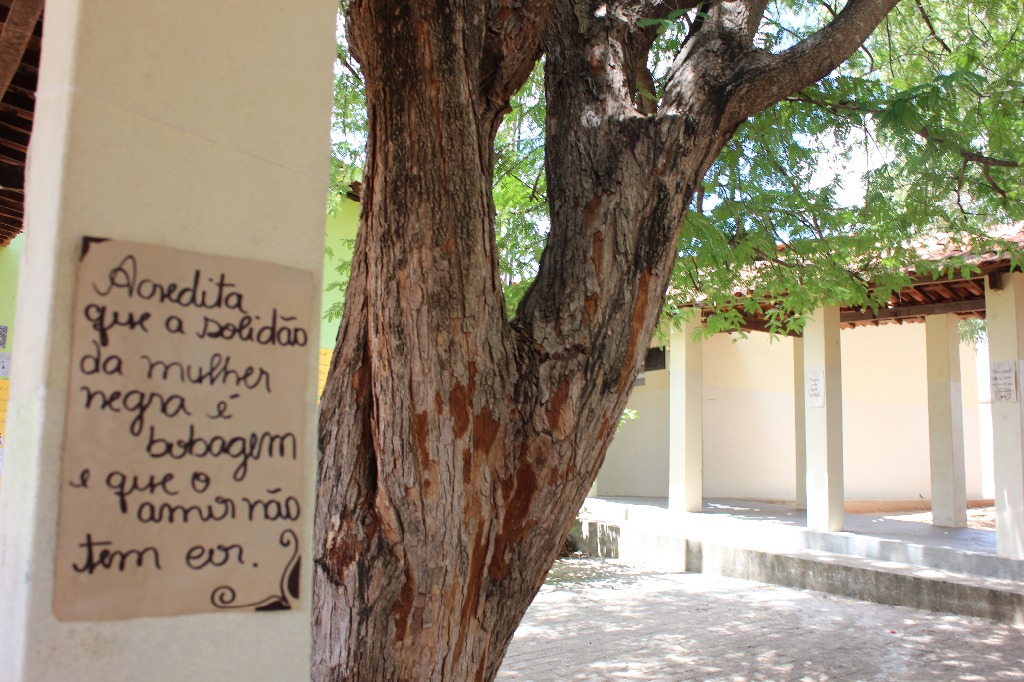 Acredita
que a solidão
da mulher
negra é
bobagem
e que o
amor não
tem cor.